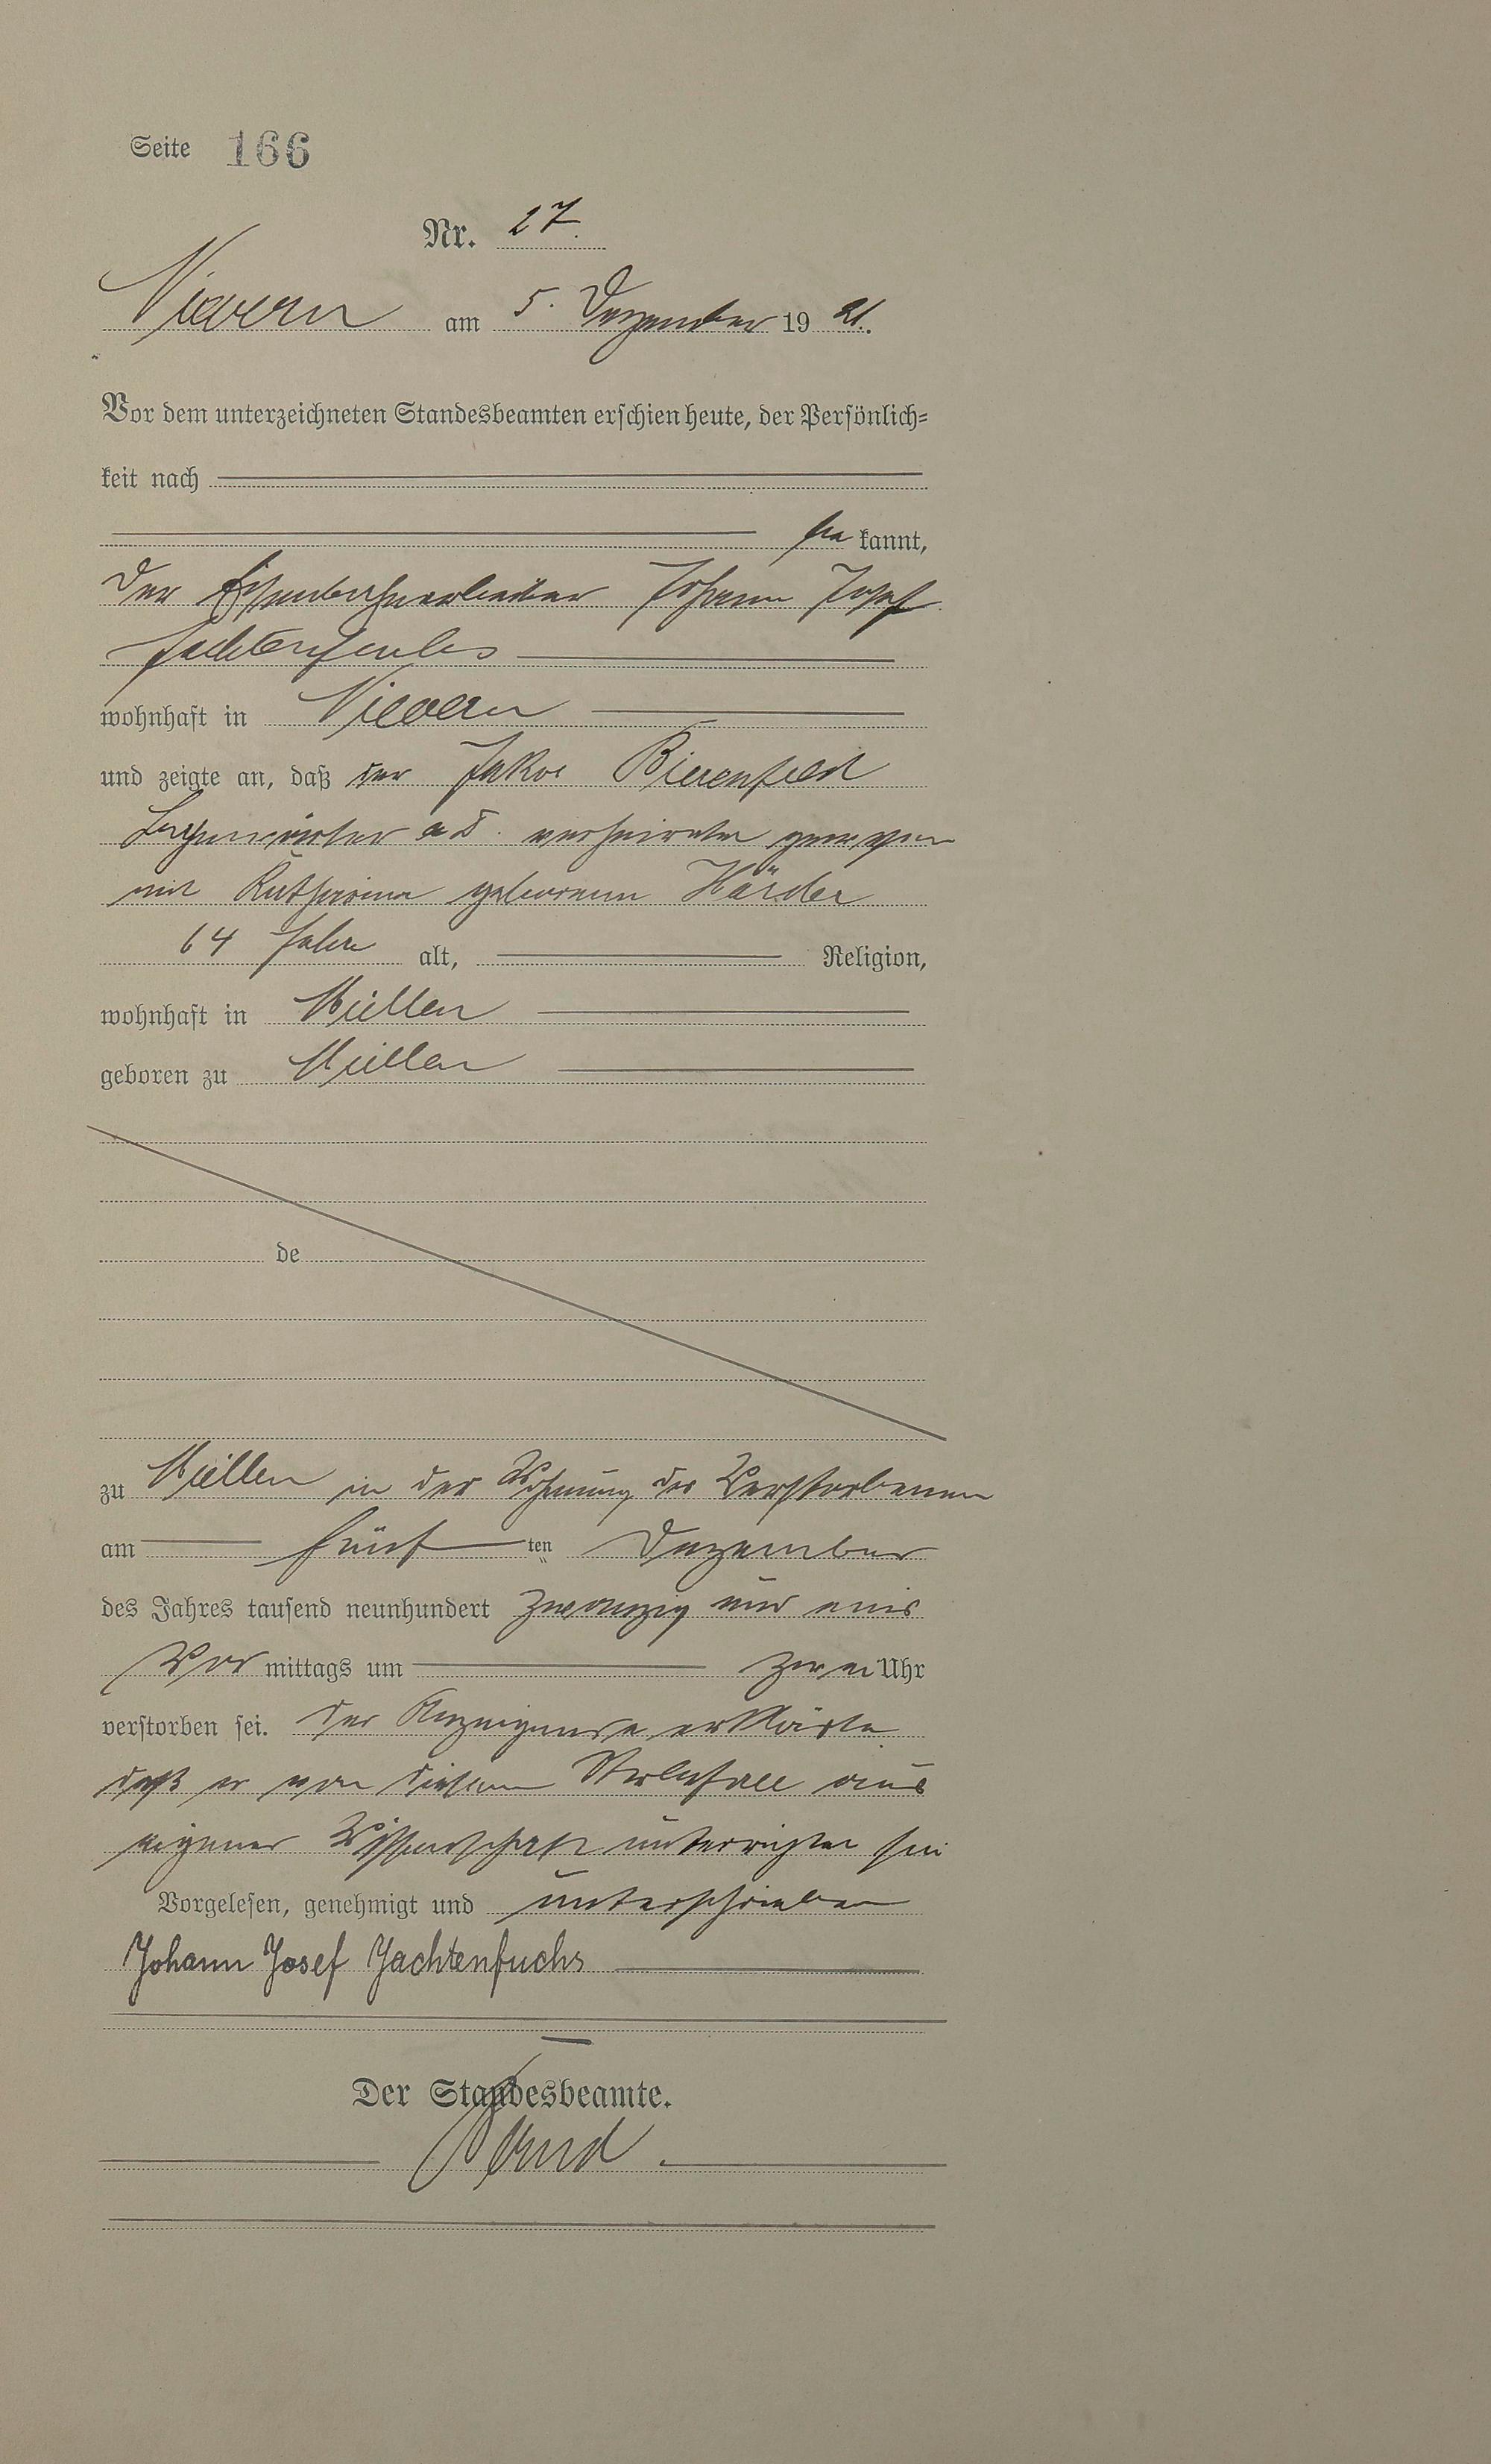 Seite 166
Nr. 27.
Nievern am 5. Dezember 19 21.
Vor dem unterzeichneten Standesbeamten erschien heute, der Persönlich=
keit nach
be kannt,
der Eisenbahnarbeiter Johann Josef
Jachtenfuchs
wohnhaft in Nievern
und zeigte an, daß der Jakob Bierenfeld
a D. verheiratet gewesen
mit Katharina geborenen Härder
64 Jahre alt, Religion,
wohnhaft in Miellen
geboren zu Miellen
de
zu Miellen in der Wohnung des Verstorbenen
am fünf ten Dezember
des Jahres tausend neunhundert zwanzig und eins
Vor mittags um zwei Uhr
verstorben sei. Der Anzeigende erklärte
daß er von diesem Sterbefall aus
eigener Wissenschaft unterrichtet sei
Vorgelesen, genehmigt und unterschrieben
Johann Josef Jachtenfuchs
Der Standesbeamte.